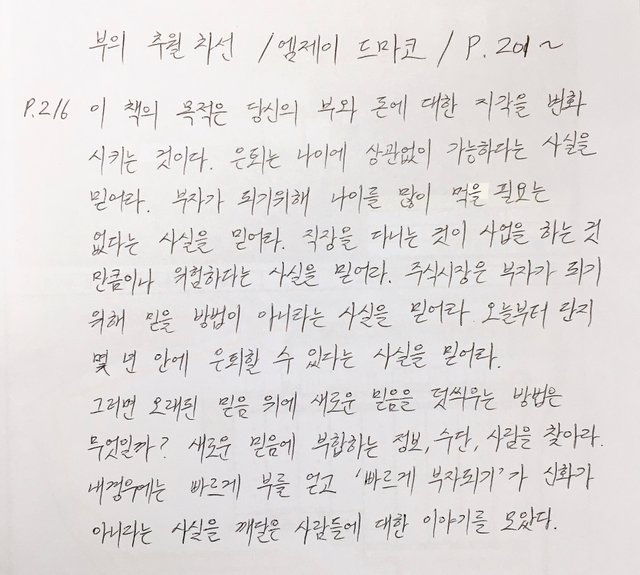 부의 추월차선 /엠제이 드마코 / P.201~
P.216 이 책의 목적은 당신의 부와 돈에 대한 지각을 변화
시키는 것이다. 은퇴는 나이에 상관없이 가능하다는 사실을
믿어라. 부자가 되기위해 나이를 많이 먹을 필요는
없다는 사실을 믿어라. 직장을 다니는 것이 사업을 하는 것
만큼이나 위험하다는 사실을 믿어라. 주식시장은 부자가 되기
위해 믿을 방법이 아니라는 사실을 믿어라. 오늘부터 단지
몇 년 안에 은퇴할 수 있다는 사실을 믿어라.
그러면 오래된 믿음 위에 새로운 믿음을 덧씌우는 방법은
무엇일까? 새로운 믿음에 부합하는 정보, 수단, 사람을 찾아라.
내경우에는 빠르게 부를 얻고 '빠르게 부자되기'가 신화가
아니라는 사실을 깨달은 사람들에 대한 이야기를 모았다.